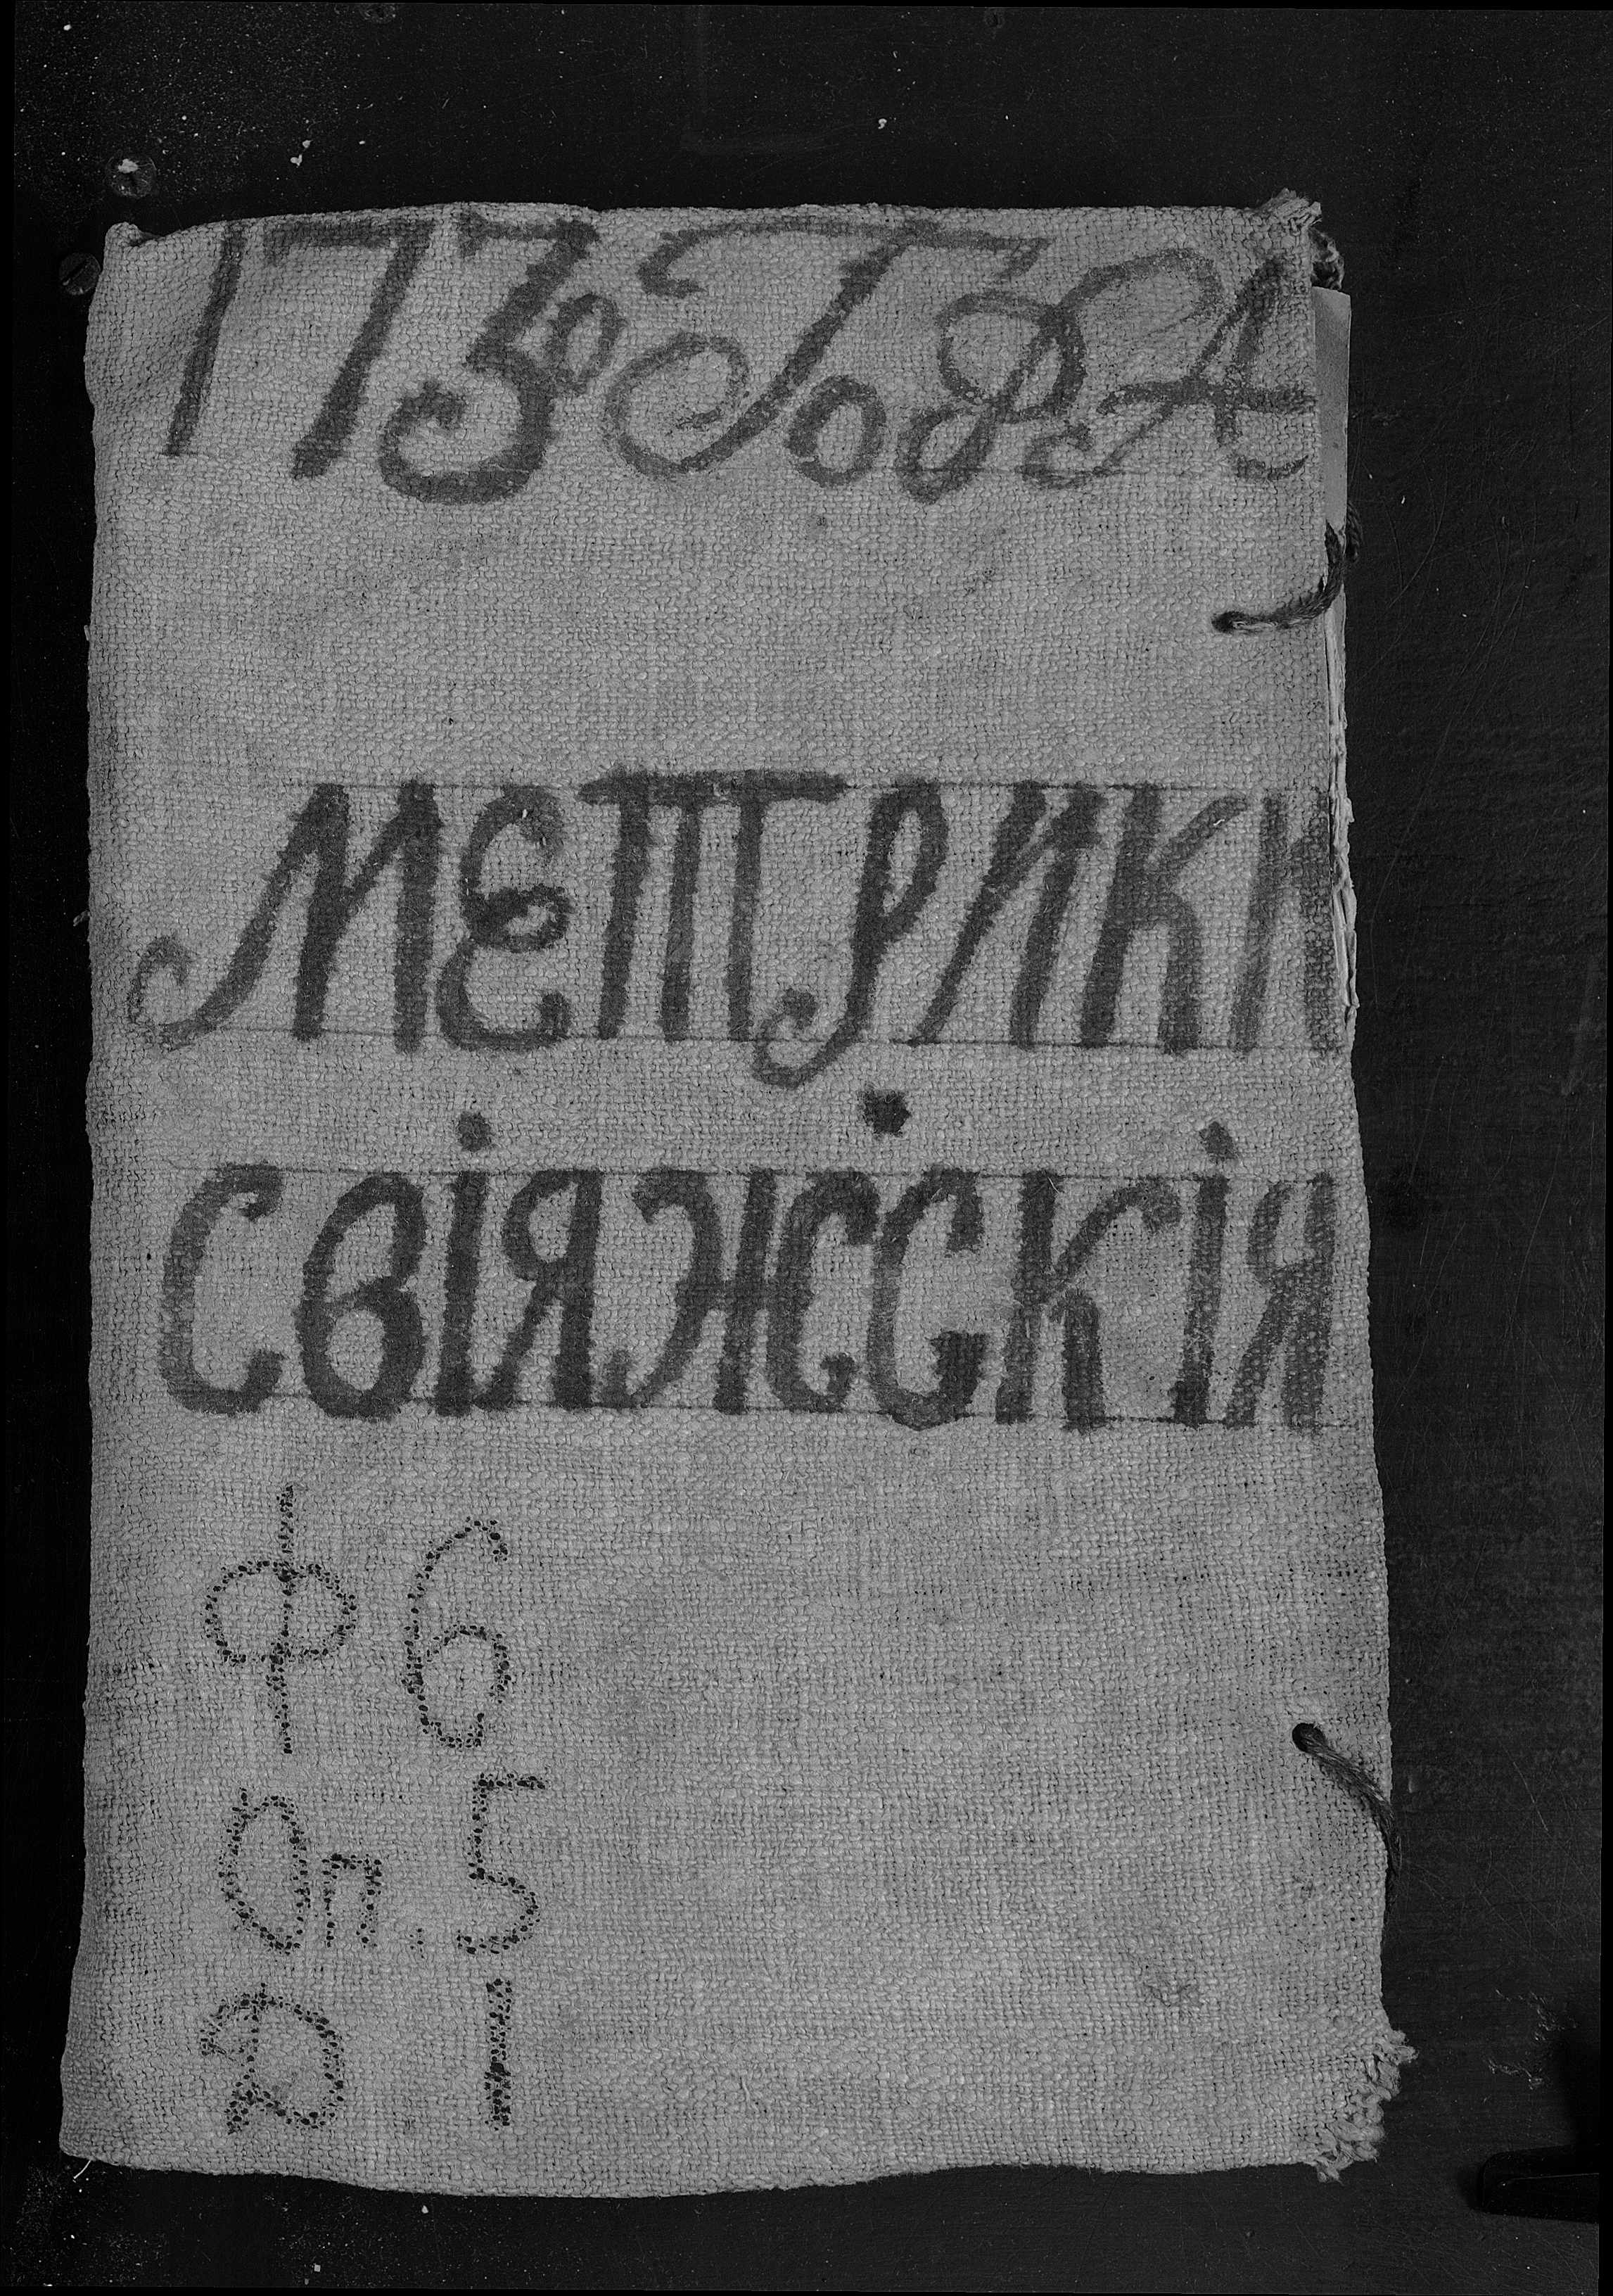 1730 Года
МЕТРИКИ
СВІЯЖСКІЯ
Ф 6
Оп. 5
Д 1